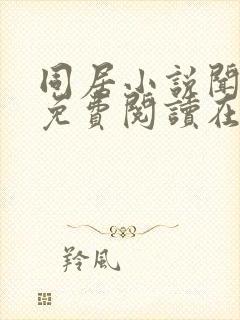 同居小說閣
免費閱讀在
羚風